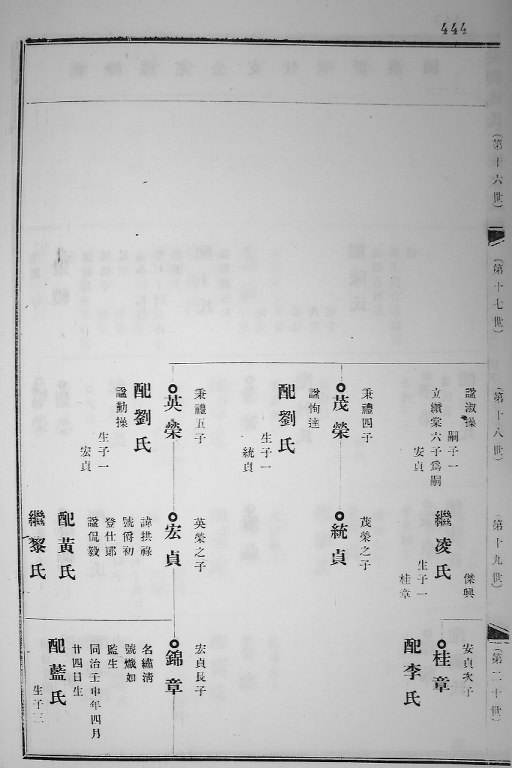 444
（第十六世）
（第十七世）
（第十八世）
（第十九世）
（第二十世）
諡淑操
嗣子一
立纘棠六子爲嗣
安貞
秉禮四子
茂榮
諡恂達
配劉氏
生子一
統貞
秉禮五子
英榮
配劉氏
諡勤操
生子一
宏貞
傑興
繼凌氏
生子一
桂章
茂榮之子
統貞
英榮之子
宏貞
諱拱祿
號爵初
登仕郎
諡侃毅
配黃氏
繼黎氏
安貞次子
桂章
配李氏
宏貞長子
錦章
名繡淸
號熾如
監生
同治壬申年四月
廿四日生
配藍氏
生子三